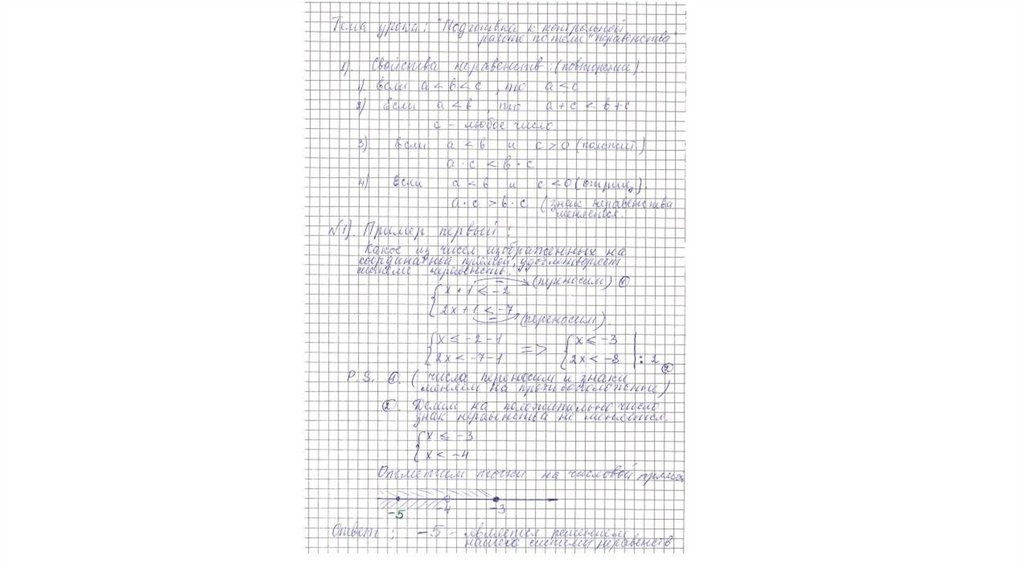 Тема урока: "Подготовка к контрольной
работе по теме "Неравенства"
1) Свойства неравенств: (повторение).
1) Если a < b < c, то a < c
2) Если a < b, то a + c < b + c
c - любое число
3) Если a < b и c > 0 (полож.)
a · c < b · c
4) Если a < b и c < 0 (отриц.).
a · c > b · c (знак неравенства
меняется.
№1). Пример первый:
Какое из чисел изображённых на
координатной прямой, удовлетворяет
системе неравенств.
{ x + 1 ≤ -2 (переносим) ①
2x + 1 < -7 (переносим).
{ x ≤ -2-1 => { x ≤ -3
2x < -7-1 2x < -8 | : 2 ②
P.S. ①. (числа переносим и знаки
меняем на противоположные)
②. Делим на положительное число
знак неравенства не меняется.
{ x ≤ -3
x < -4
Отметим точки на числовой прямой
-5 -4 -3
Ответ: -5 - является решением
нашей системы неравенств